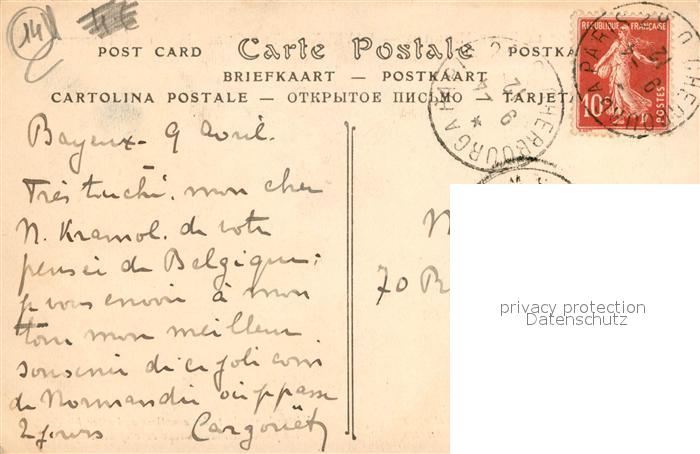 14
POST CARD Carte Postale POSTKA
BRIEFKAART — POSTKAART
CARTOLINA POSTALE — ОТКРЫТОЕ ПИСЬМО — TARJETA
REPUBLIQUE FRANÇAISE
10
POSTES
CHERBOURG A PARIS
Bayeux - 9 avril.
Très touché, mon cher
M. Kramol. de votre
pensée de Belgique;
je vous envoie à mon
tour mon meilleur
souvenir de ce joli coin
de Normandie où je passe
2 jours Cargouët
70 R
privacy protection
Datenschutz